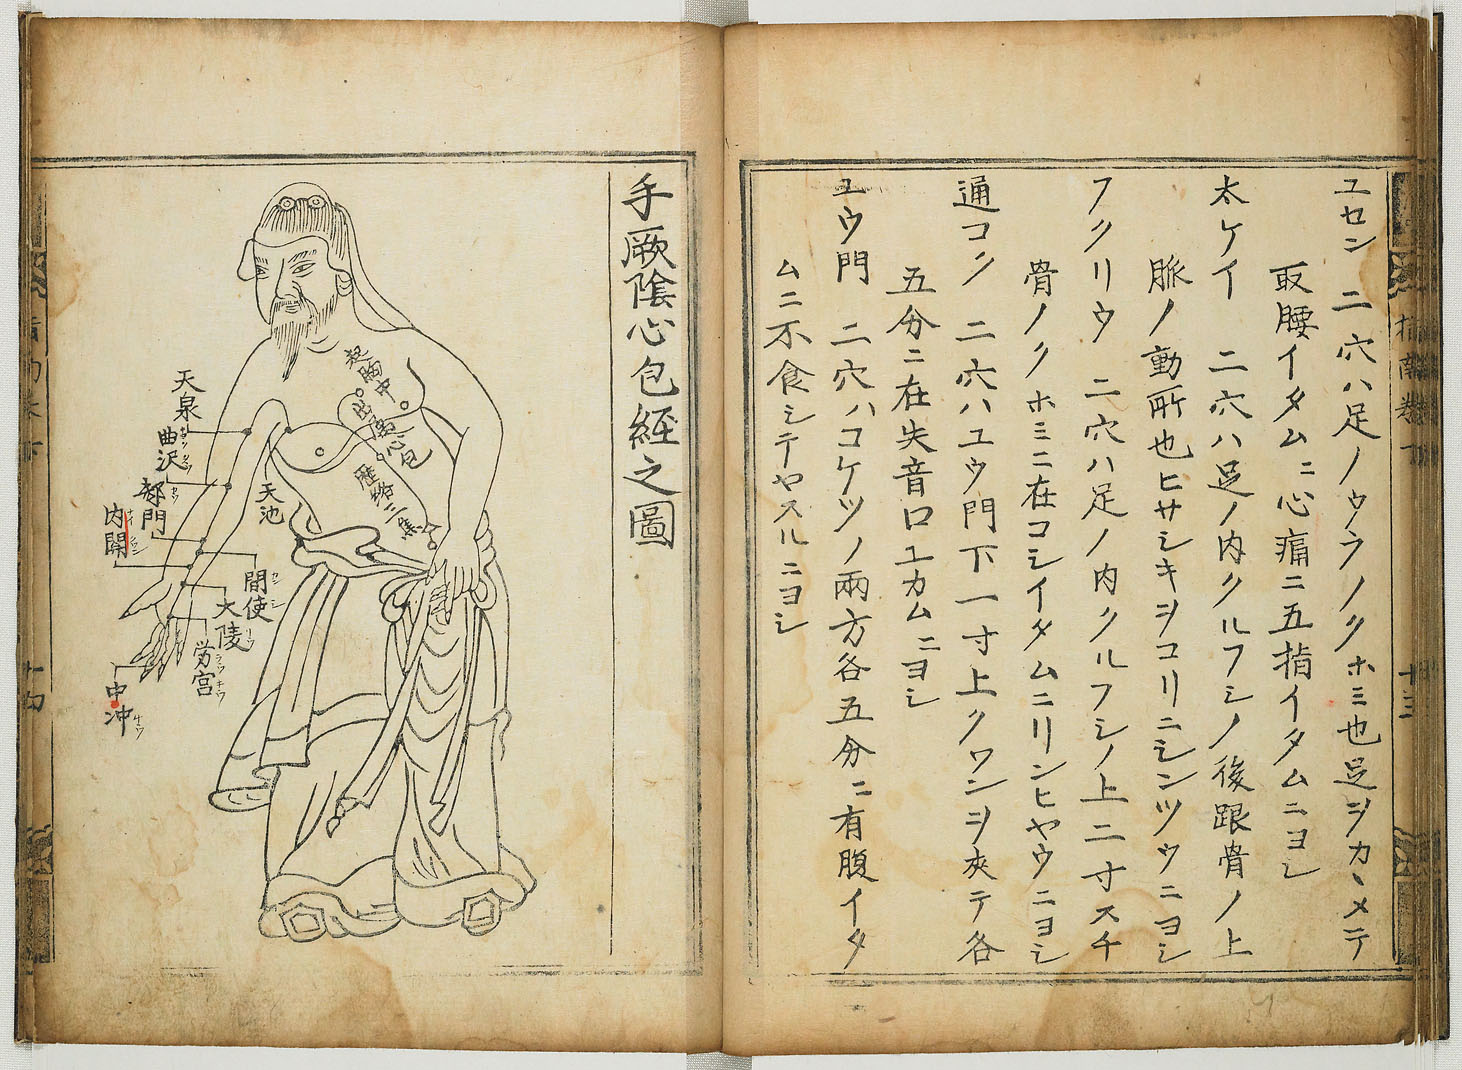 ユセン 二穴ハ足ノウラノクホミ也足ヲカヽメテ
取腰イタムニ心痛ニ五指イタムニヨシ
太ケイ 二穴ハ足ノ内クルフシノ後跟骨ノ上
脈ノ動所也ヒサシキヲコリニシンツウニヨシ
フクリウ 二穴ハ足ノ内クルフシノ上二寸スチ
骨ノクホミニ在コシイタムニリンヒヤウニヨシ
通コン 二穴ハユウ門下一寸上クワンヲ夾テ各
五分ニ在失音口エカムニヨシ
ユウ門 二穴ハコケツノ兩方各五分ニ有腹イタ
ムニ不食シテヤスルニヨシ
手厥陰心包經之圖
起胸中
出属心包
歷絡三焦
天泉
曲沢
郄門
内関
天池
間使
大陵
労宮
中冲